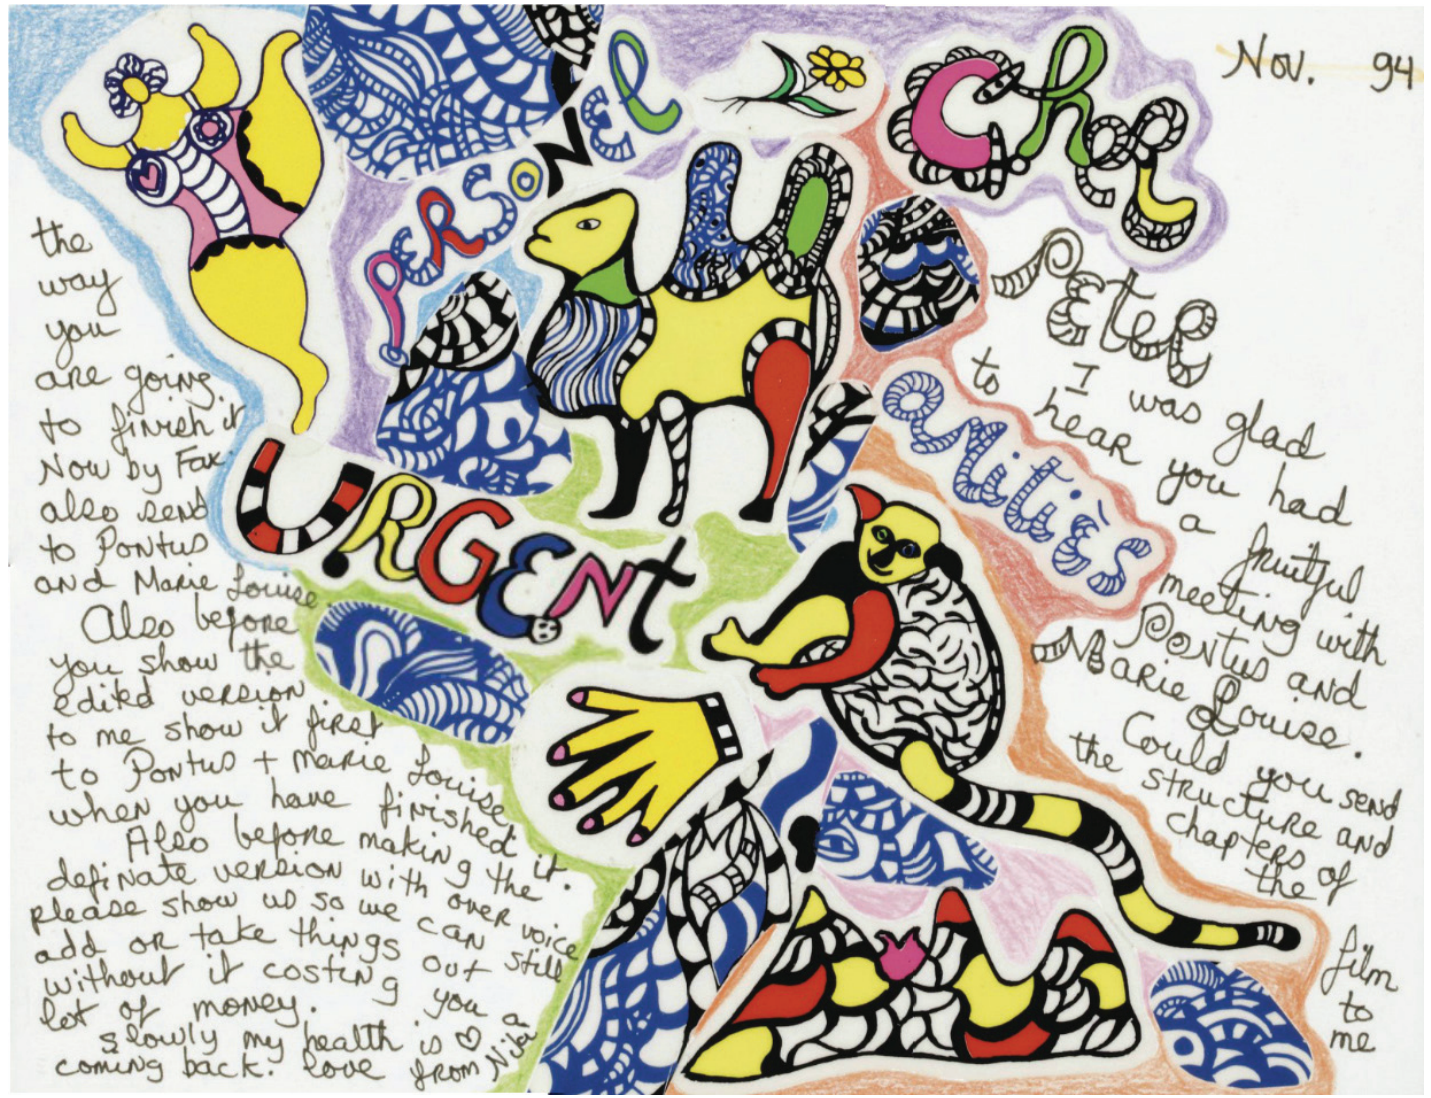 Nov. 94
PERSONEL
URGENT
Cher
Peter
amitiés
I was glad
to hear you had
a fruitful
meeting with
Pontus and
Marie Louise.
Could you send
the structure and
chapters of
the
film
to
me
the
way
you
are going
to finish it
Now by Fax.
also send
to Pontus
and Marie Louise
Also before
you show the
edited version
to me show it first
to Pontus + Marie Louise
when you have finished it.
Also before making the
definate version with over voice
please show us so we can still
add or take things out
without it costing you a
lot of money.
slowly my health is ♡
coming back. love from Niki